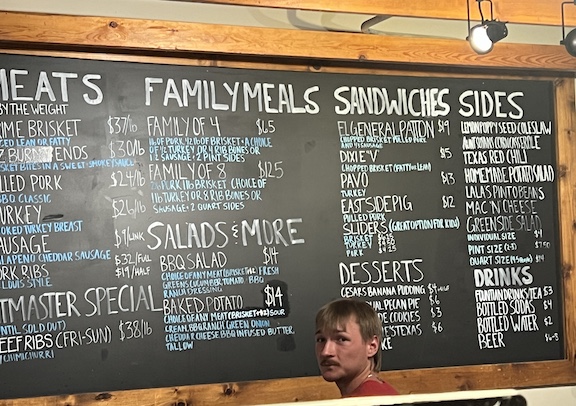 MEATS
BY THE WEIGHT
PRIME BRISKET $37/lb
SLICED LEAN OR FATTY
BURNT ENDS $30/lb
BRISKET BITES IN A SWEET & SMOKEY SAUCE
PULLED PORK $24/lb
BBQ CLASSIC
TURKEY $26/lb
SMOKED TURKEY BREAST
SAUSAGE $9/LINK
JALAPENO CHEDDAR SAUSAGE
PORK RIBS $32/FULL
ST LOUIS STYLE $19/HALF
PITMASTER SPECIAL
UNTIL SOLD OUT)
BEEF RIBS (FRI-SUN) $38/lb
W/CHIMICHURRI
FAMILY MEALS
FAMILY OF 4 $65
1lb OF PORK, 1/2 lb OF BRISKET & A CHOICE
OF 1/2 TURKEY OR 4 RIB BONES OR
2 SAUSAGE + 2 PINT SIDES
FAMILY OF 8 $125
2lb PORK 1lb BRISKET CHOICE OF
1lb TURKEY OR 8 RIB BONES OR
SAUSAGE + 2 QUART SIDES
SALADS & MORE
BBQ SALAD $14
CHOICE OF ANY MEAT (BRISKET FRESH
GREENS CUCUMBER TOMATO BBQ
RANCH DRESSING
BAKED POTATO $14
CHOICE OF ANY MEAT (BRISKET SOUR
CREAM, BBQ RANCH GREEN ONION
CHEDDAR CHEESE BBQ INFUSED BUTTER
TALLOW
SANDWICHES
EL GENERAL PATTON $19
CHOPPED BRISKET PULLED PORK
AND 1/2 SAUSAGE
DIXIE 'V' $15
CHOPPED BRISKET (FATTY OR LEAN)
PAVO $13
TURKEY
EASTSIDE PIG $12
PULLED PORK
SLIDERS (GREAT OPTION FOR KIDS)
BRISKET
TURKEY
PORK
DESSERTS
CESARS BANANA PUDDING
PECAN PIE $6
COOKIES $3
TEXAS $6
SIDES
LEMON POPPY SEED COLESLAW
AUNT RONNI'S CROWCK STYLE
TEXAS RED CHILI
HOMEMADE POTATO SALAD
LALAS PINTO BEANS
MAC 'N CHEESE
GREEN SIDE SALAD
INDIVIDUAL SIZE $4
PINT SIZE (2-3) $7.50
QUART SIZE (4-5) $14
DRINKS
FOUNTIAN DRINKS/TEA $3
BOTTLED SODAS $4
BOTTLED WATER $2
BEER $6-8